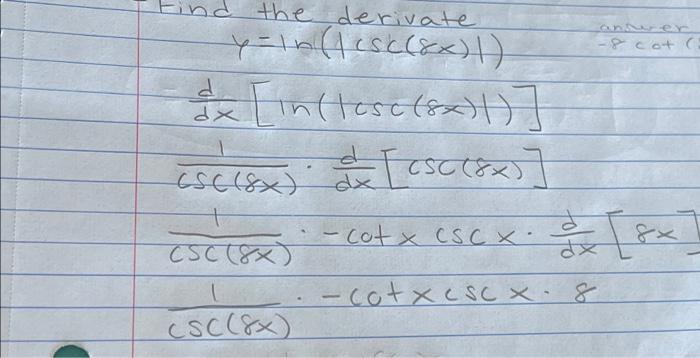 Find the derivate
y=ln(|csc(8x)|)
answer
-8 cot (
d/dx [ln(|csc(8x)|)]
1/csc(8x) · d/dx [csc(8x)]
1/csc(8x) · -cotx cscx · d/dx [8x]
1/csc(8x) · -cotxcscx · 8